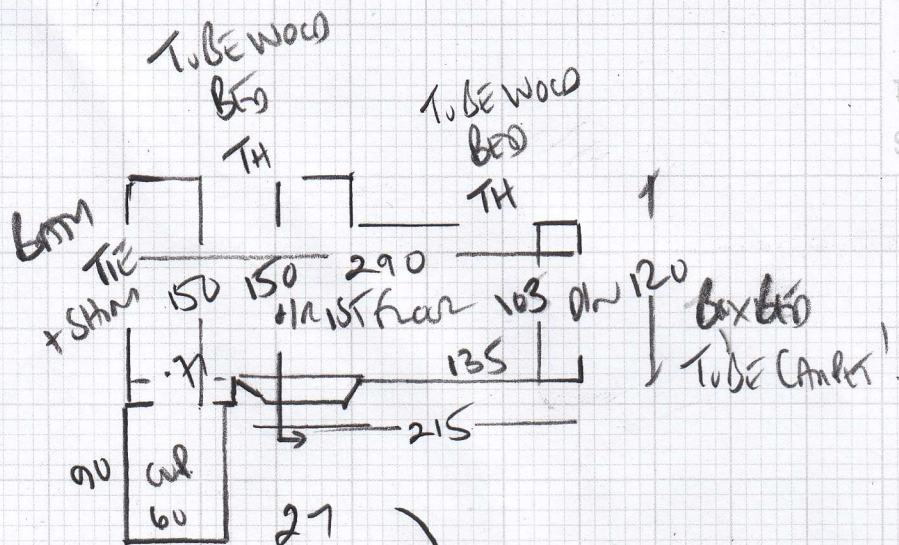 TUBE WOLD
BED
TH
TUBE WOLD
BED
TH
BATH
TIE
+ SHIM
150
150
290
163
DIN
120
BOX BED
TUBE CARPET
.71
135
215
90
CUP
60
27